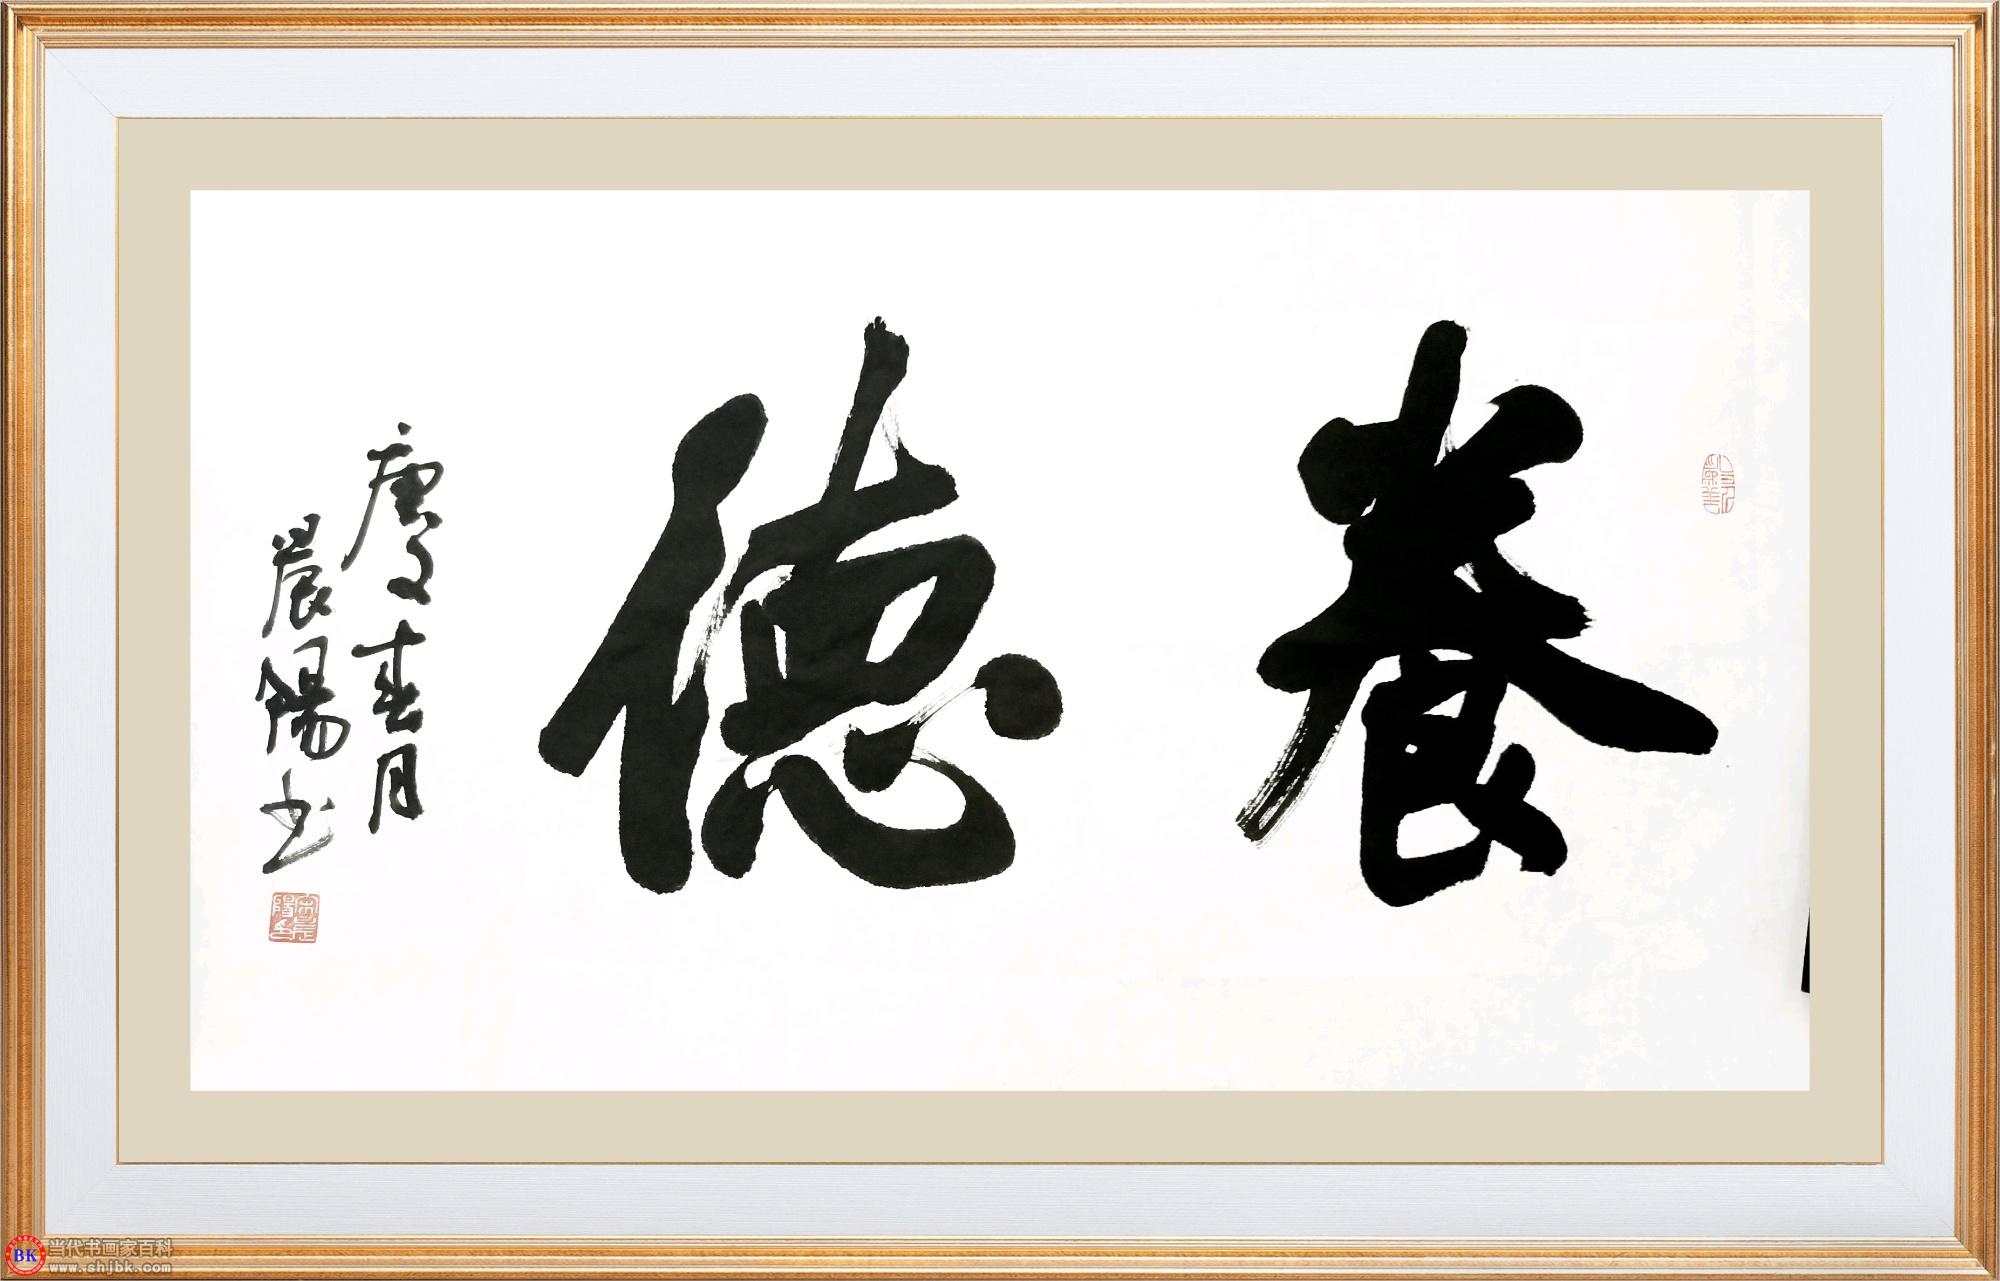 養德
庚子春月
晨陽书
宋晨陽印
BK
当代书画家百科
www.shjbk.com